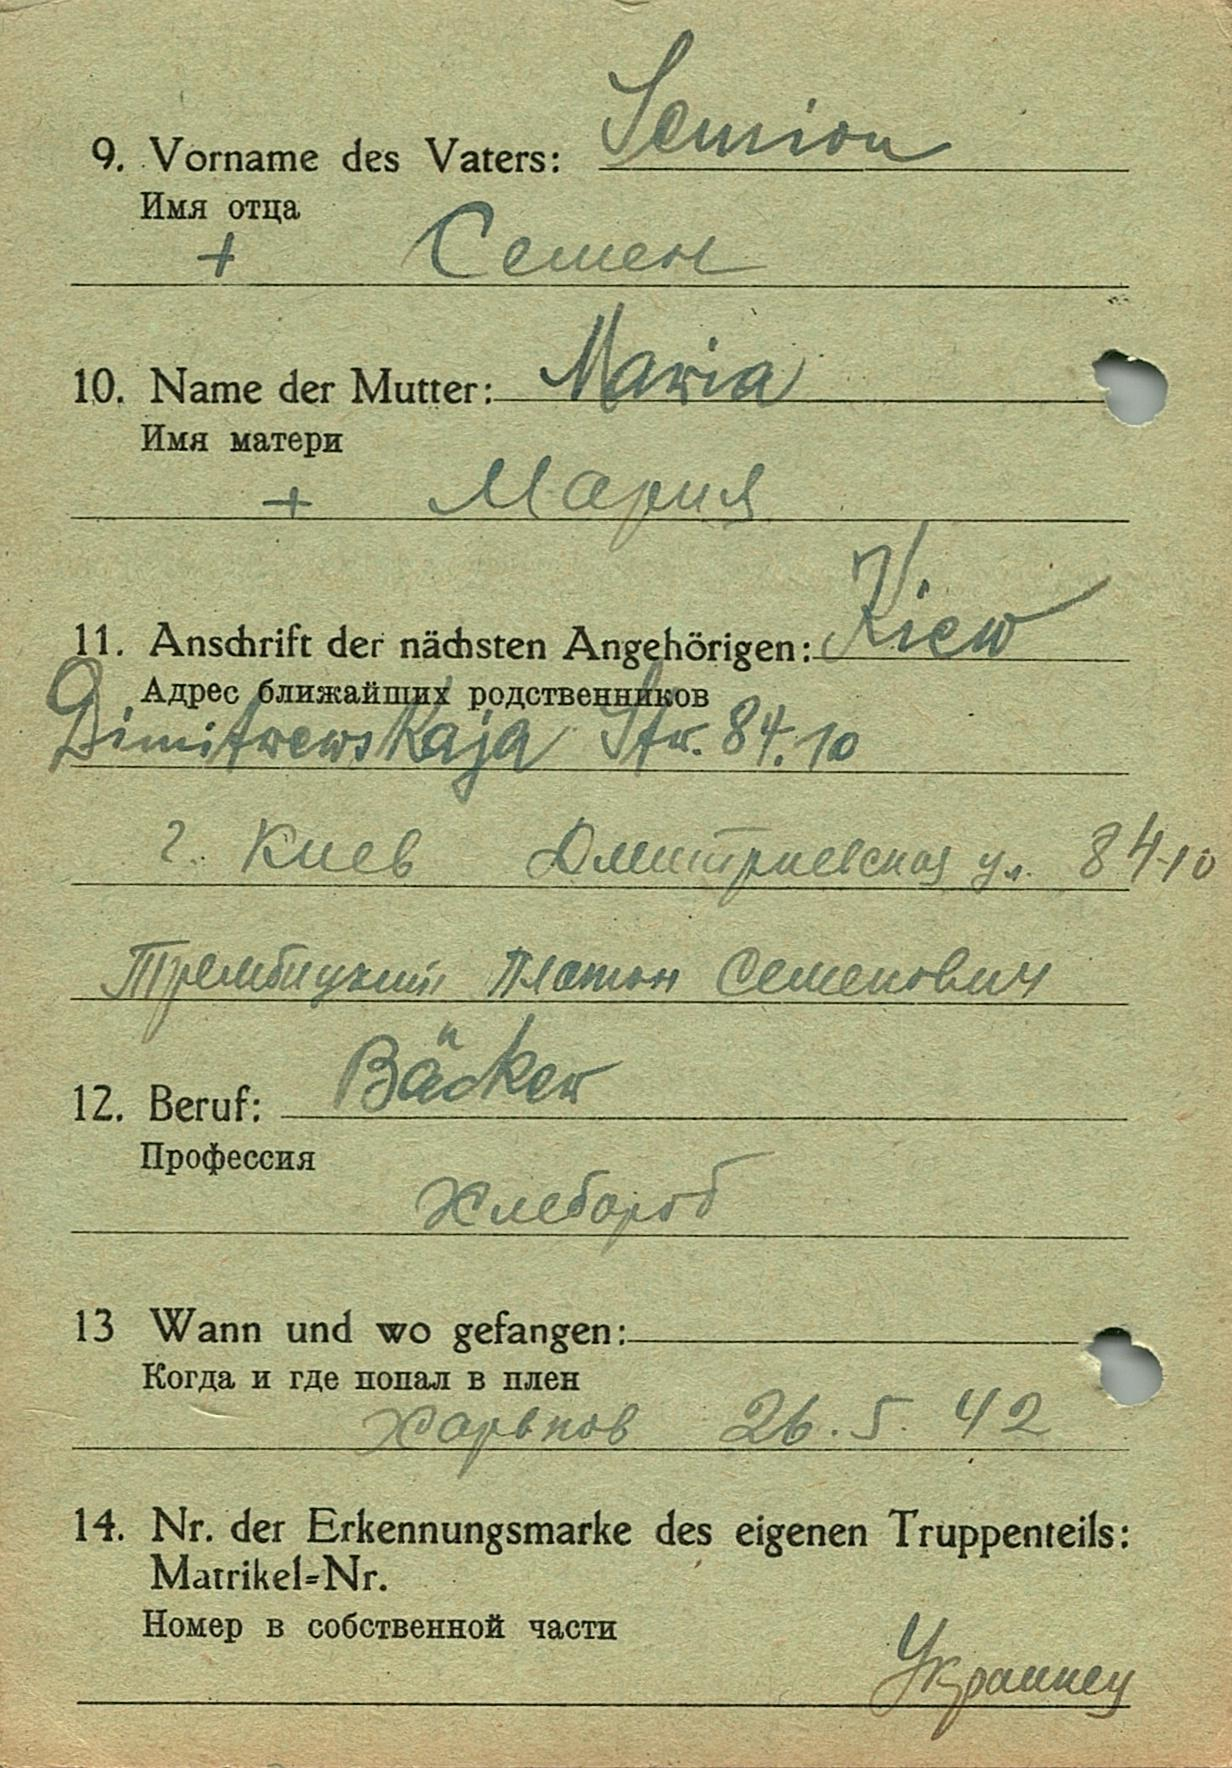 9. Vorname des Vaters: Semion
Имя отца
+ Семен
10. Name der Mutter: Maria
Имя матери
+ Мария
11. Anschrift der nächsten Angehörigen: Kiew
Адрес ближайших родственников
Dimitrewskaja Str. 84.10
г. Киев Дмитриевская ул. 84-10
Трембицкий Платон Семенович
12. Beruf: Bäcker
Профессия
Хлебороб
13 Wann und wo gefangen:
Когда и где попал в плен
Харьков 26.5.42
14. Nr. der Erkennungsmarke des eigenen Truppenteils:
Matrikel=Nr.
Номер в собственной части
Украинец